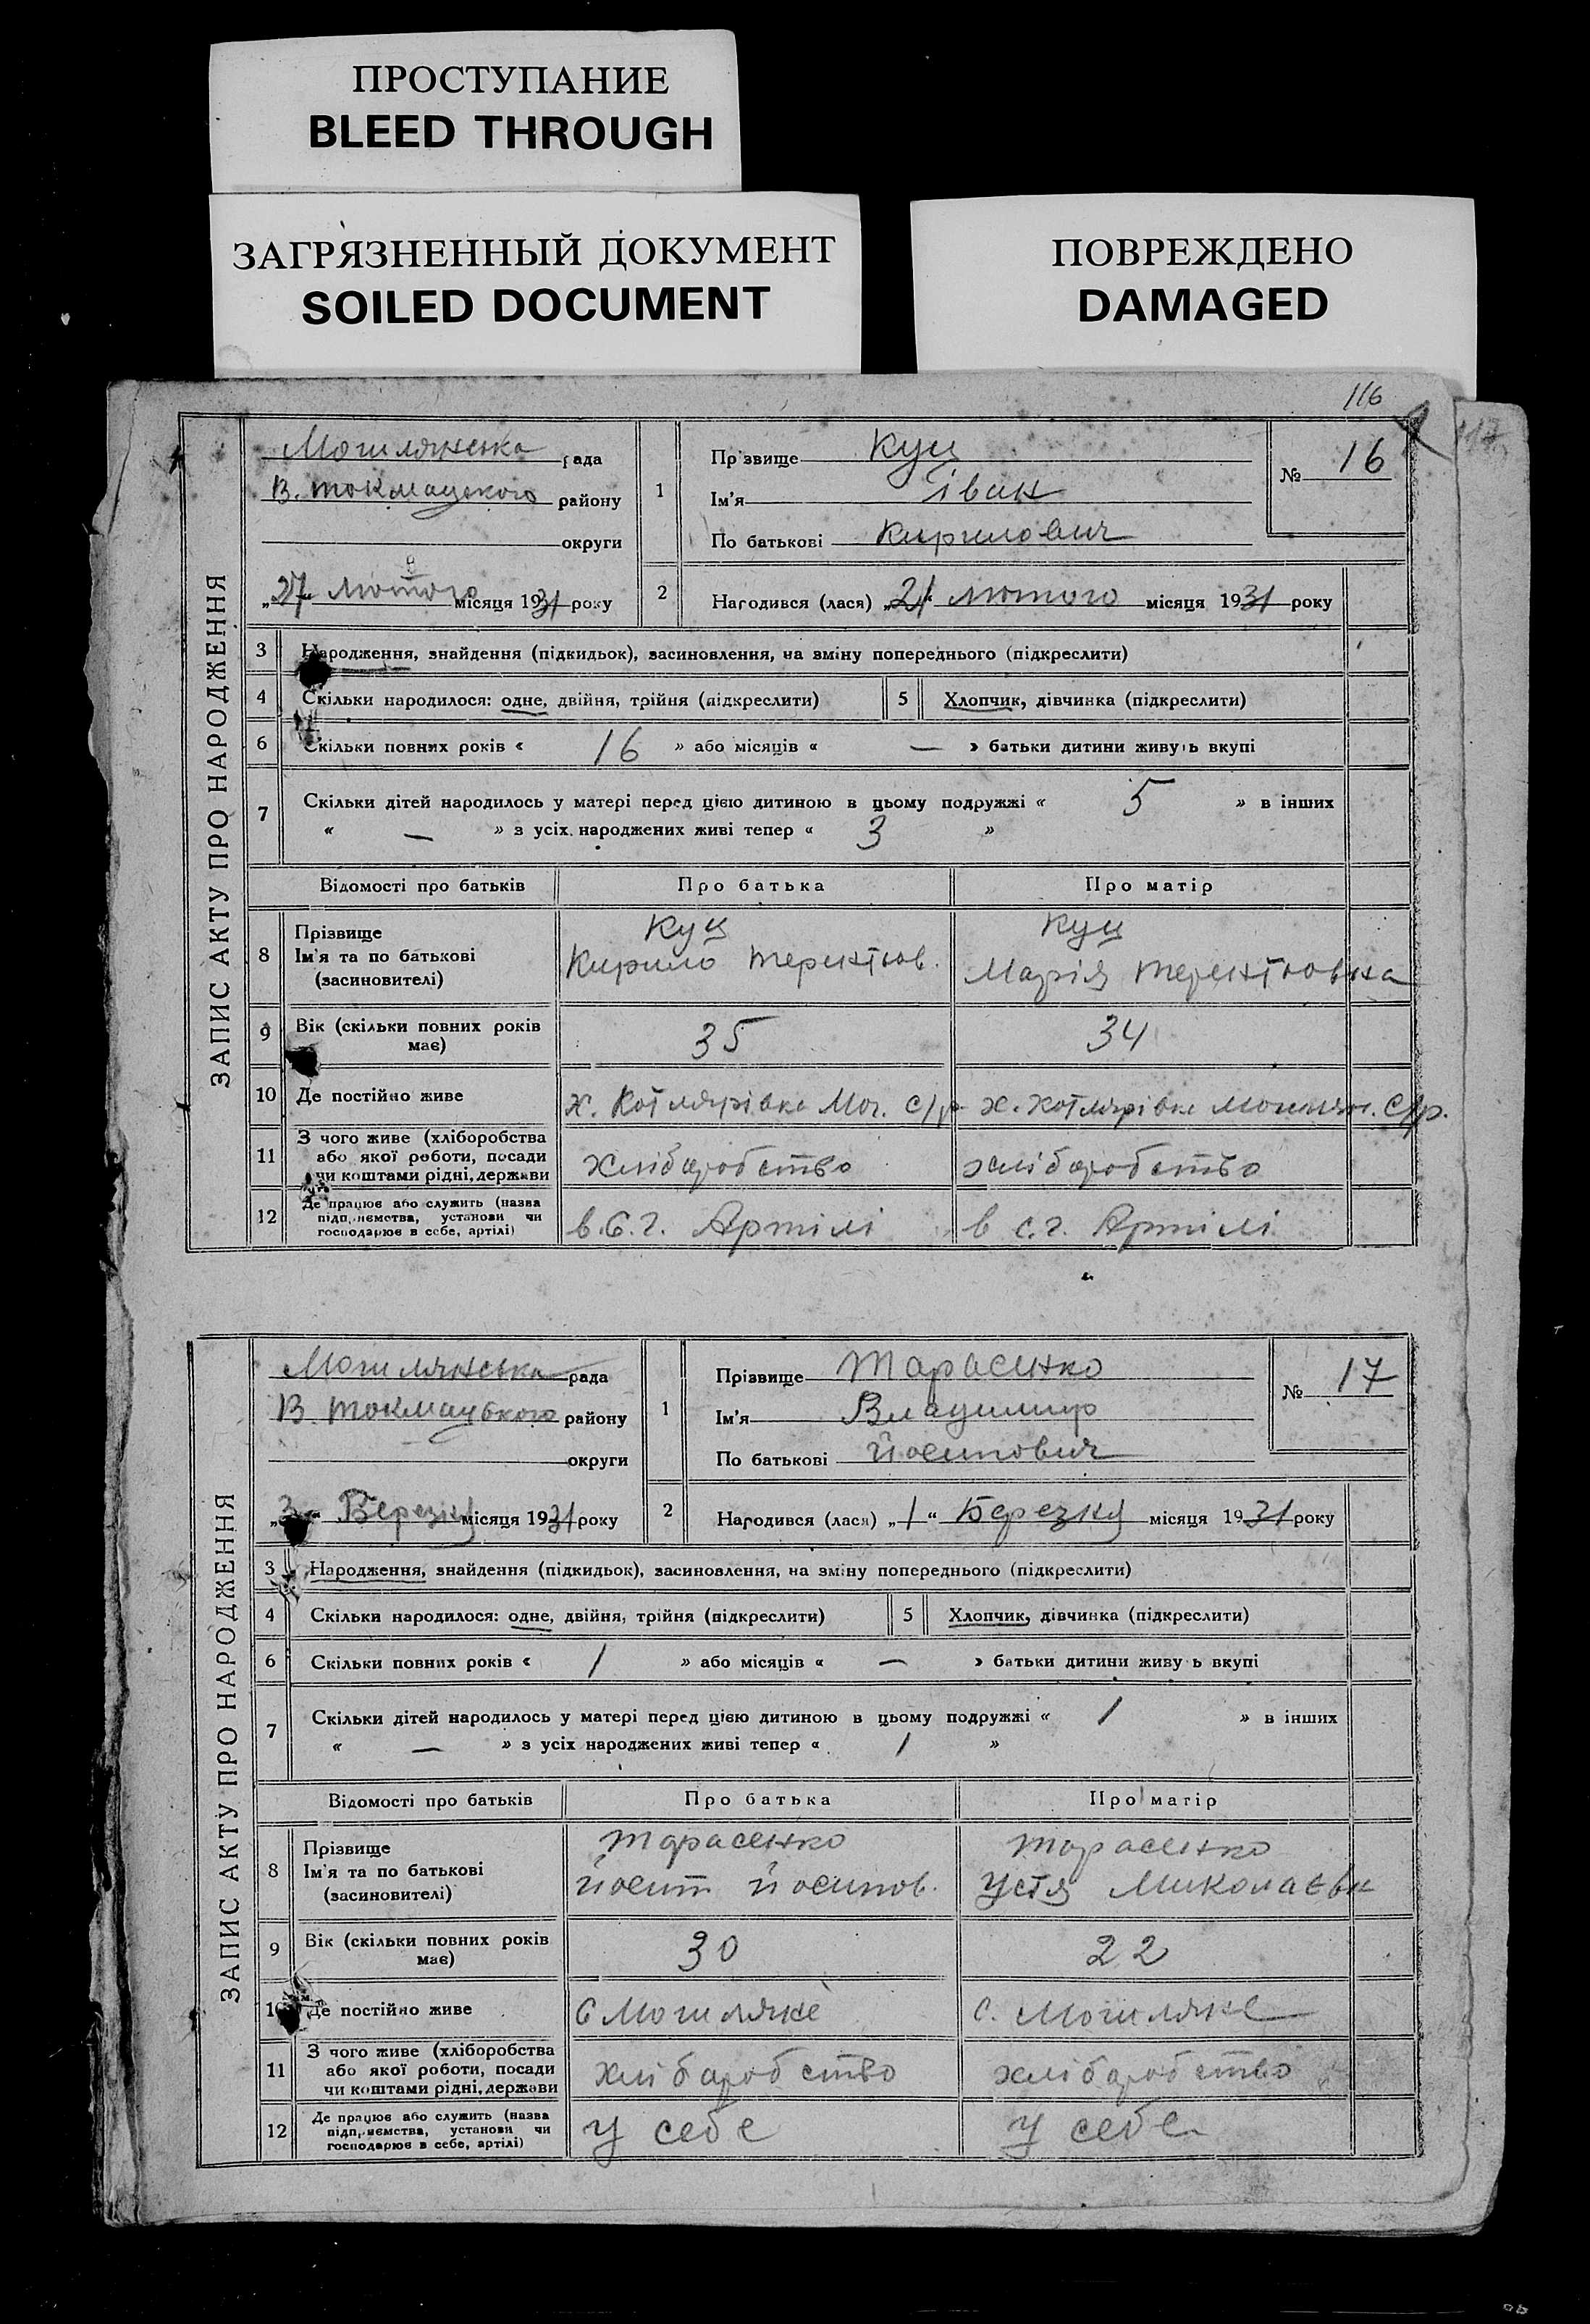 ПРОСТУПАНИЕ
BLEED THROUGH
ЗАГРЯЗНЕННЫЙ ДОКУМЕНТ
SOILED DOCUMENT
ПОВРЕЖДЕНО
DAMAGED
116
117
ЗАПИС АКТУ ПРО НАРОДЖЕННЯ
Могилянська рада
В. Токмацького району
округи
„27“ Лютого місяця 1931 року
1
Прізвище Куц
Ім'я Іван
По батькові Кирилович
№ 16
2 Народився (лася) „21“ Лютого місяця 1931 року
3 Народження, знайдення (підкидьок), засиновлення, на зміну попереднього (підкреслити)
4 Скільки народилося: одне, двійня, трійня (підкреслити) 5 Хлопчик, дівчинка (підкреслити)
6 Скільки повних років « 16 » або місяців « — » батьки дитини живуть вкупі
7 Скільки дітей народилось у матері перед цією дитиною в цьому подружжі « 5 » в інших
« — » з усіх народжених живі тепер « 3 »
Відомості про батьків Про батька Про матір
8 Прізвище Куц Куц
Ім'я та по батькові Кирило Терентіов. Марія Терентіовна
(засиновителі)
9 Вік (скільки повних років 35 34
має)
10 Де постійно живе х. Котлярівка Мог. с/р х. Котлярівка Могилян. с/р.
11 З чого живе (хліборобства
або якої роботи, посади хліборобство хліборобство
чи коштами рідні, держави
12 Де працює або служить (назва
підприємства, установи чи в с.г. Артілі в с.г. Артілі
господарює в себе, артілі)
ЗАПИС АКТУ ПРО НАРОДЖЕННЯ
Могилянська рада
В. Токмацького району
округи
„3“ Березня місяця 1931 року
1
Прізвище Тарасенко
Ім'я Владимир
По батькові Йосипович
№ 17
2 Народився (лася) „1“ Березня місяця 1931 року
3 Народження, знайдення (підкидьок), засиновлення, на зміну попереднього (підкреслити)
4 Скільки народилося: одне, двійня, трійня (підкреслити) 5 Хлопчик, дівчинка (підкреслити)
6 Скільки повних років « 1 » або місяців « — » батьки дитини живуть вкупі
7 Скільки дітей народилось у матері перед цією дитиною в цьому подружжі « 1 » в інших
« — » з усіх народжених живі тепер « 1 »
Відомості про батьків Про батька Про матір
8 Прізвище Тарасенко Тарасенко
Ім'я та по батькові Йосип Йосипов. Устя Миколаєвн
(засиновителі)
9 Вік (скільки повних років 30 22
має)
10 Де постійно живе С Могиляне с. Могиляне
11 З чого живе (хліборобства
або якої роботи, посади хліборобство хліборобство
чи коштами рідні, держави
12 Де працює або служить (назва
підприємства, установи чи у себе у себе
господарює в себе, артілі)